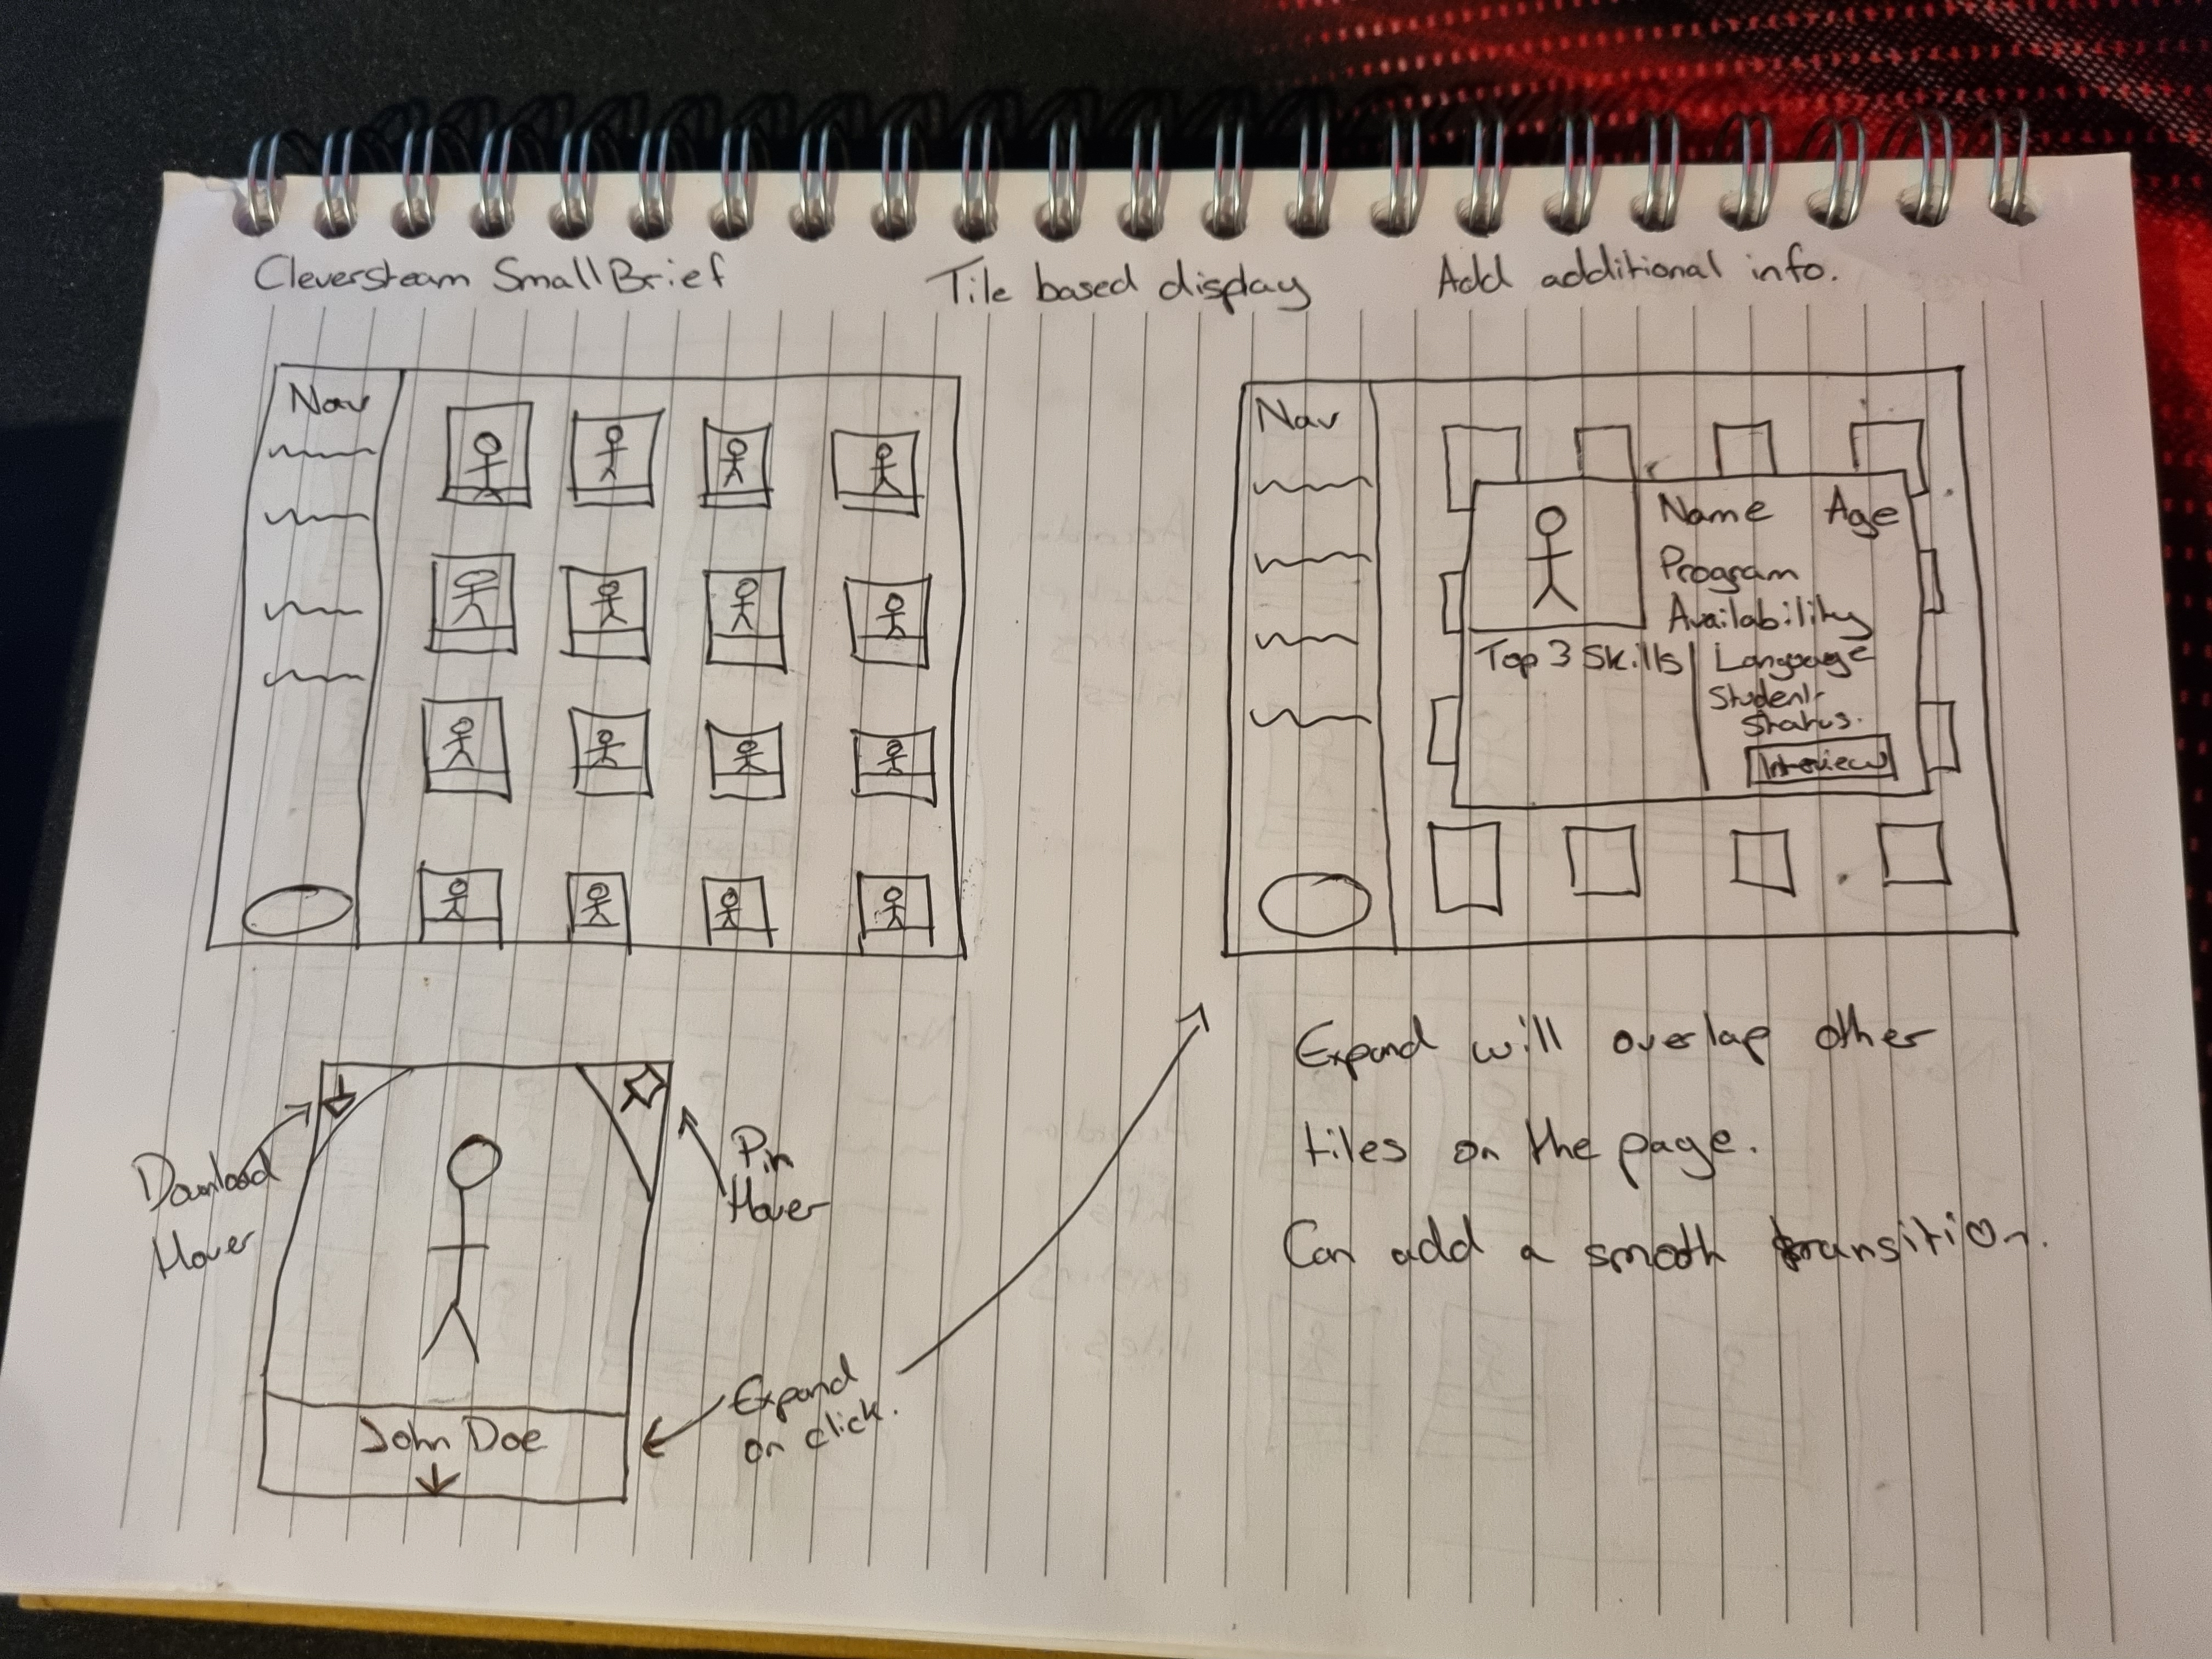 Cleversteam Small Brief
Tile based display
Add additional info.
Nav
Nav
Name Age
Program
Availability
Top 3 Skills
Language
Student
Status.
Interview
Download
Hover
Pin
Hover
John Doe
Expand
on click.
Expand will overlap other
tiles on the page.
Can add a smooth transition.